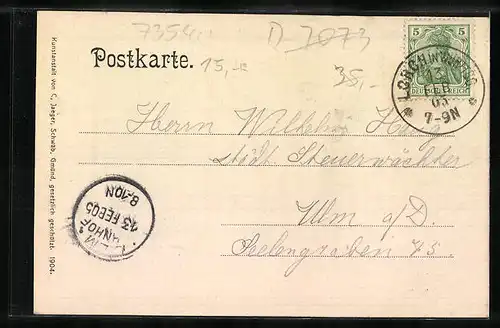 7354
D-7073
Postkarte.
15,-
38,-
5
DEUTSCHES REICH
LORCH
13
FEB
05
7-9N
Herrn Wilhelm
Städt Steuerwächter
Ulm a/D.
Seelengraben
ULM
BAHNHOF
13 FEB 05
8-10N
Kunstanstalt von C. Jaeger, Schwäb. Gmünd, gesetzlich geschützt. 1904.